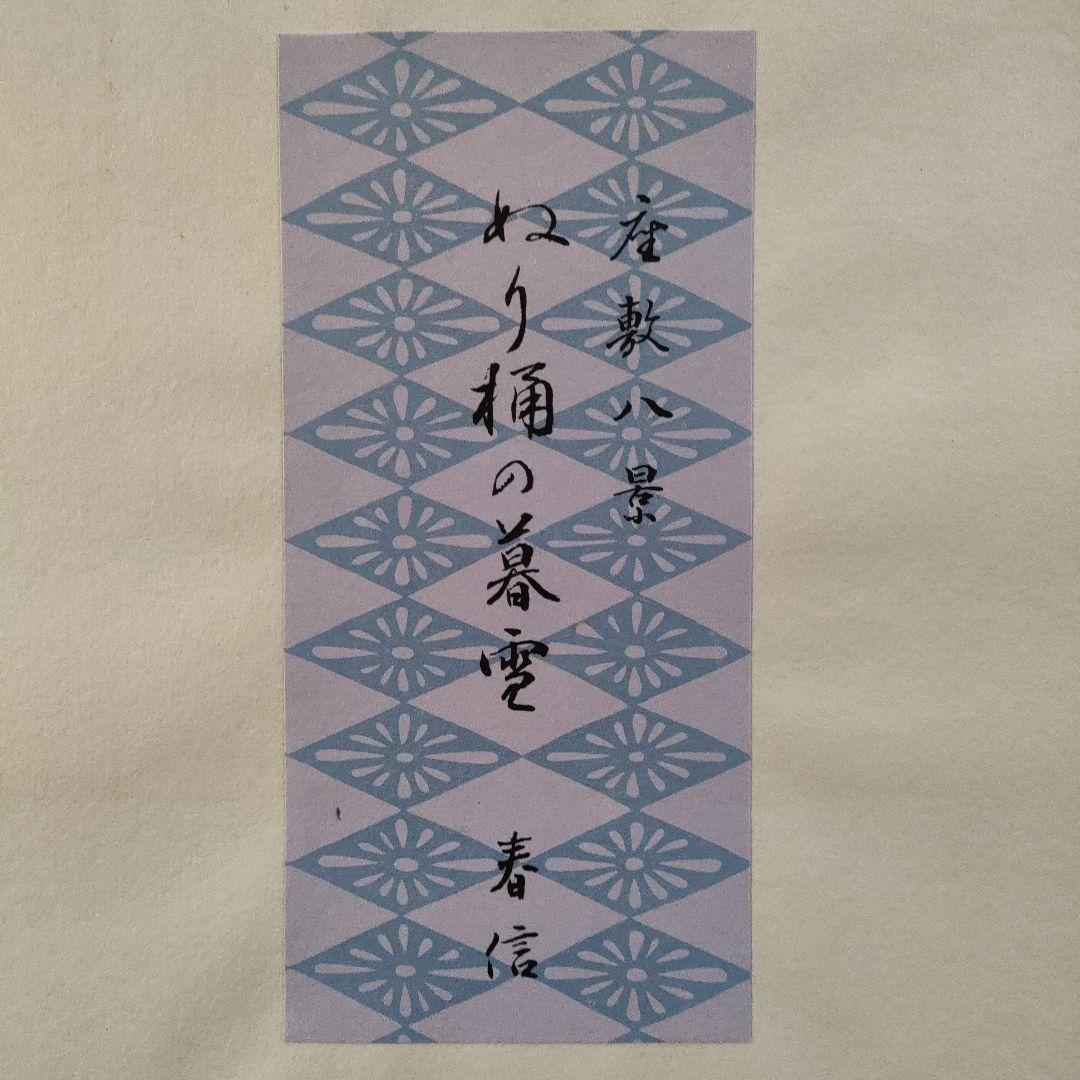 座敷八景
ぬり桶の暮雪
春信